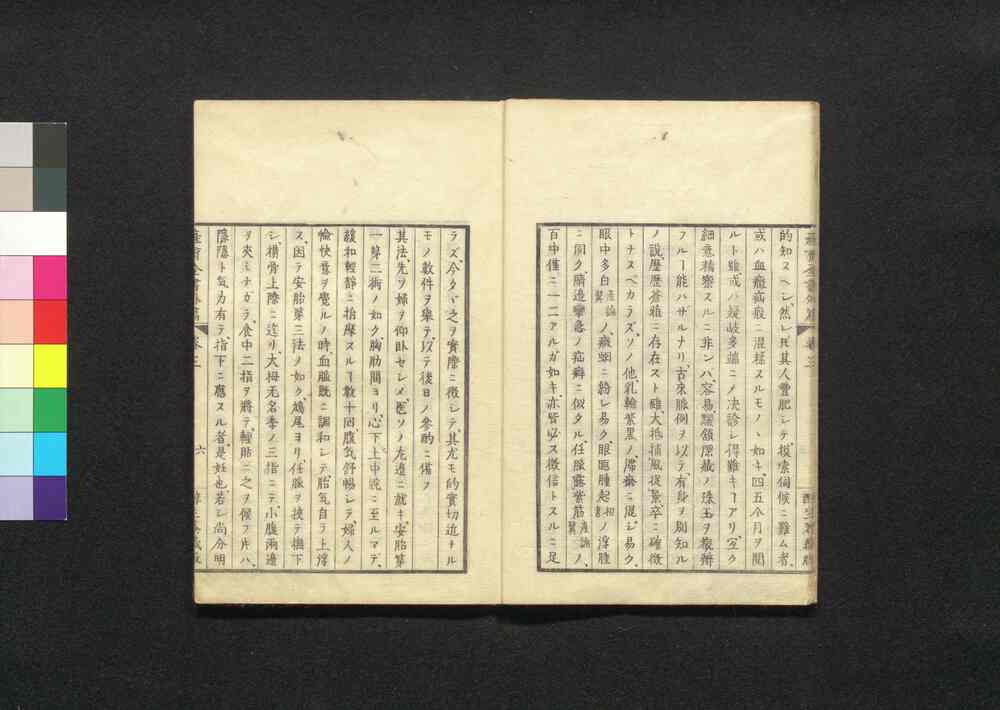 的知スヘシ、然レ𪜈其人豐肥シテ、揆索伺候ニ難ム者、
或ハ血癥疝瘕ニ混様スルモノヽ如キ、四五个月ヲ閲
ルト雖、或ハ疑岐多端ニ乄決診シ得難キヿアリ、
細意精察スルニ非ンハ、容易驪頷隠蔵ノ珠玉ヲ
フルヿ能ハザルナリ、古來脈例ヲ以テ、有身ヲ別知ル
ノ説、歴歴蒼雅ニ存在スト雖、大抵捕風捉景、卒ニ確徴
トナスベカラズ、ソノ他、乳輪紫黒ノ滞瘀ニ混ジ易ク、
眼中多白産論翼ノ、癥蛔ニ紛レ易ク、眼胞腫起ノ浮腫
ニ同ク、臍邉攣急ノ疝癖ニ似タル、任脈露紫筋産論翼ノ、
百中僅ニ一二アルガ如キ、亦皆必ス徴信トスルニ足
ラズ、今クハ之ヲ實際ニ徴シテ、其尤モ的實切近ナル
モノ數件ヲ擧テ、以テ後日ノ參酌ニ備フ
其法、先ヲ婦ヲ仰卧セシメ、医ソノ左邉ニ就キ、安胎第
一第二術ノ如ク、胸肋間ヨリ、心下上中脘ニ至ルマデ、
緩和輕靜ニ抬摩スルヿ數十回、腹气舒暢シテ、婦人ノ
愉快意ヲ覺ルノ時、血脈既ニ調和シテ、胎气自ラ上浮
ス、因テ安胎第三法ノ如ク、鳩尾ヨリ、任脈ヲ挾テ撫下
シ、横骨上際ニ迄リ、大拇无名季ノ三指ニテ、小腹兩邉
ヲ夾ミナガラ、食中二指ヲ將テ、輕貼ニ之ヲ候フ片ハ、
隠隠ト气力有テ、指下ニ應スル者、是妊也、若シ尚分明
卷三
六